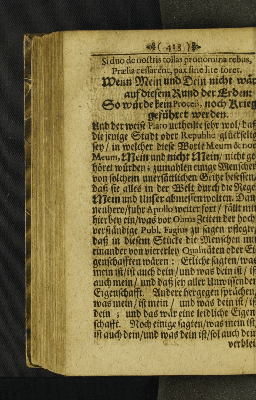 ( 413 )
Si duo de nostris tollas pronomina rebus,
Prælia cessarent, pax sine lite foret.
Wenn Mein und Dein nicht wär
auf diesem Rund der Erden:
So würde kein Proceß, noch Krieg
geführet werden.
Und der weise Plato urtheilte sehr wol / daß
die jenige Stadt oder Republic glückselig
sey / in welcher diese Worte Meum & non
Meum, Mein und nicht Mein / nicht ge-
höret würden; zumahlen einige Menschen
von solchem unersättlichen Geitze besessen /
daß sie alles in der Welt durch die Regel
Mein und Unser abmessen wolten. Dan-
nenhero / fuhr Apollo weiter fort / fällt mir
hierbey ein / was vor Zeiten der hoch-
verständige Publ. zu sagen pflegte /
daß in diesem Stücke die Menschen mit
einander von viererley Qualitäten oder Ei-
genschafften wären: Etliche sagten / was
mein ist / ist auch dein / und was dein ist / ist
auch mein / und daß sey aller Unwissenden
Eigenschafft. Andere hergegen sprächen /
was mein / ist mein / und was dein ist / ist
dein; und das wär eine leidliche Eigen-
schafft. Noch einige sagten / was mein ist /
ist auch dein / und was dein ist / sol auch dein
verblei-